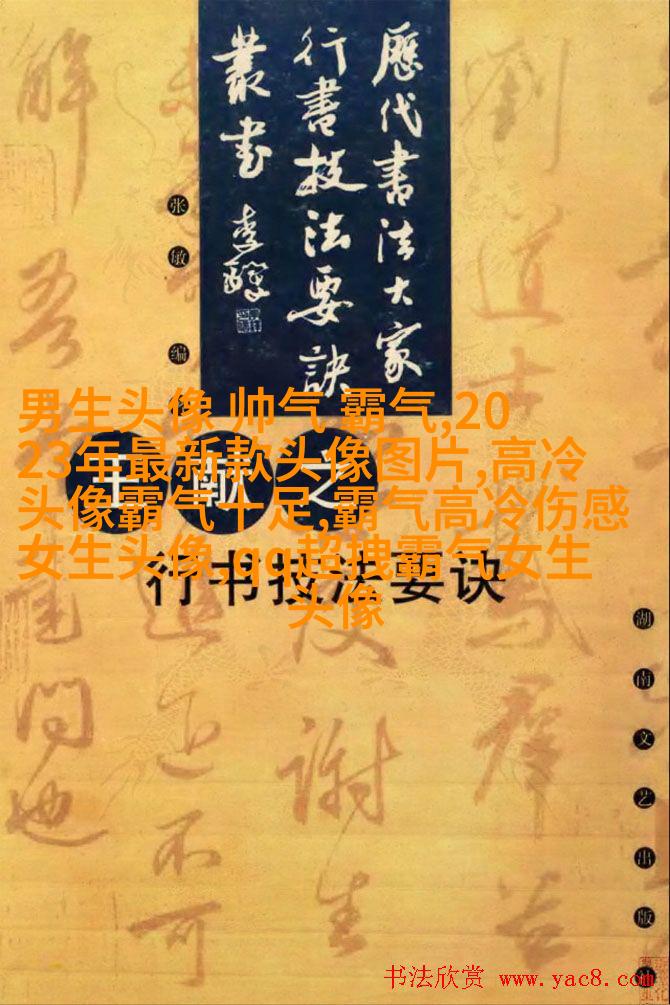 歷代書法大家
行書技法要訣
叢書
李鐸
张敏编
男生头像 帅气 霸气,20
23年最新款头像图片,高冷
头像霸气十足,霸气高冷伤感
女生头像 qq超拽霸气女生
头像
王献之
行书技法要诀
劉道士
鵝群並
復謝生
不可
解吾
問也
湖南文艺出版社
书法欣赏 www.yac8.com